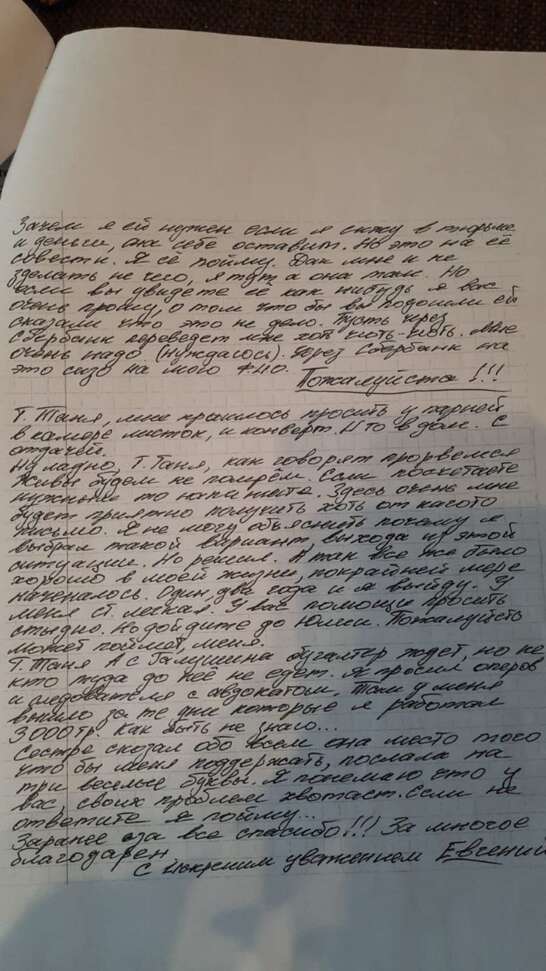 Зачем я ей нужен если я сижу в тюрьме
и деньги, она себе оставит. Но это на её
совести. Я её пойму. Дак мне и не
зделать не чего, я тут а она там. Но
если вы увидете её как нибудь я вас
очень прошу, о том что бы вы подошли ей
сказали что это не дело. Пусть через
Сбербанк переведет мне хоть чють-чють. Мне
очень надо (нуждаюсь). Через Сбербанк на
это сизо на мою ФИО.
Пожалуйста!!!
Т. Таня, мне пришлось просить у парней
в камере листок, и конверт. И то в долг. С
отдачей.
Ну ладно, Т. Таня, как говорят прорвемся
Живы будем не помрём. Если посчетаете
нужным то напишите. Здесь очень мне
будет приятно получить хоть от какого
письмо. Я не могу объяснить почему я
выбрал такой вариант, выхода из этой
ситуации. Но решил. А так все же было
хорошо в моей жизни, покрайней мере
начиналось. Один, два года и я выйду. У
меня ст. легкая. У вас помощи просить
стыдно. Но дойдите до Юлии. Пожалуйсть
может поймет, меня.
Т. Таня А с Галушина бугалтер ждет, но не
кто туда до неё не едет. Я просил оперов
и следователя с адвокатом, Там у меня
вышло за те дни которые я работал
3000тр. Как быть не знаю...
Сестре сказал обо всем она место того
что бы меня поддержать, послала на
три веселые буквы. Я понемаю что у
вас, своих проблем хватает. Если не
ответите я пойму...
Заранее за все спасибо!!! За многое
благодарен
С искреним уважением Евгений